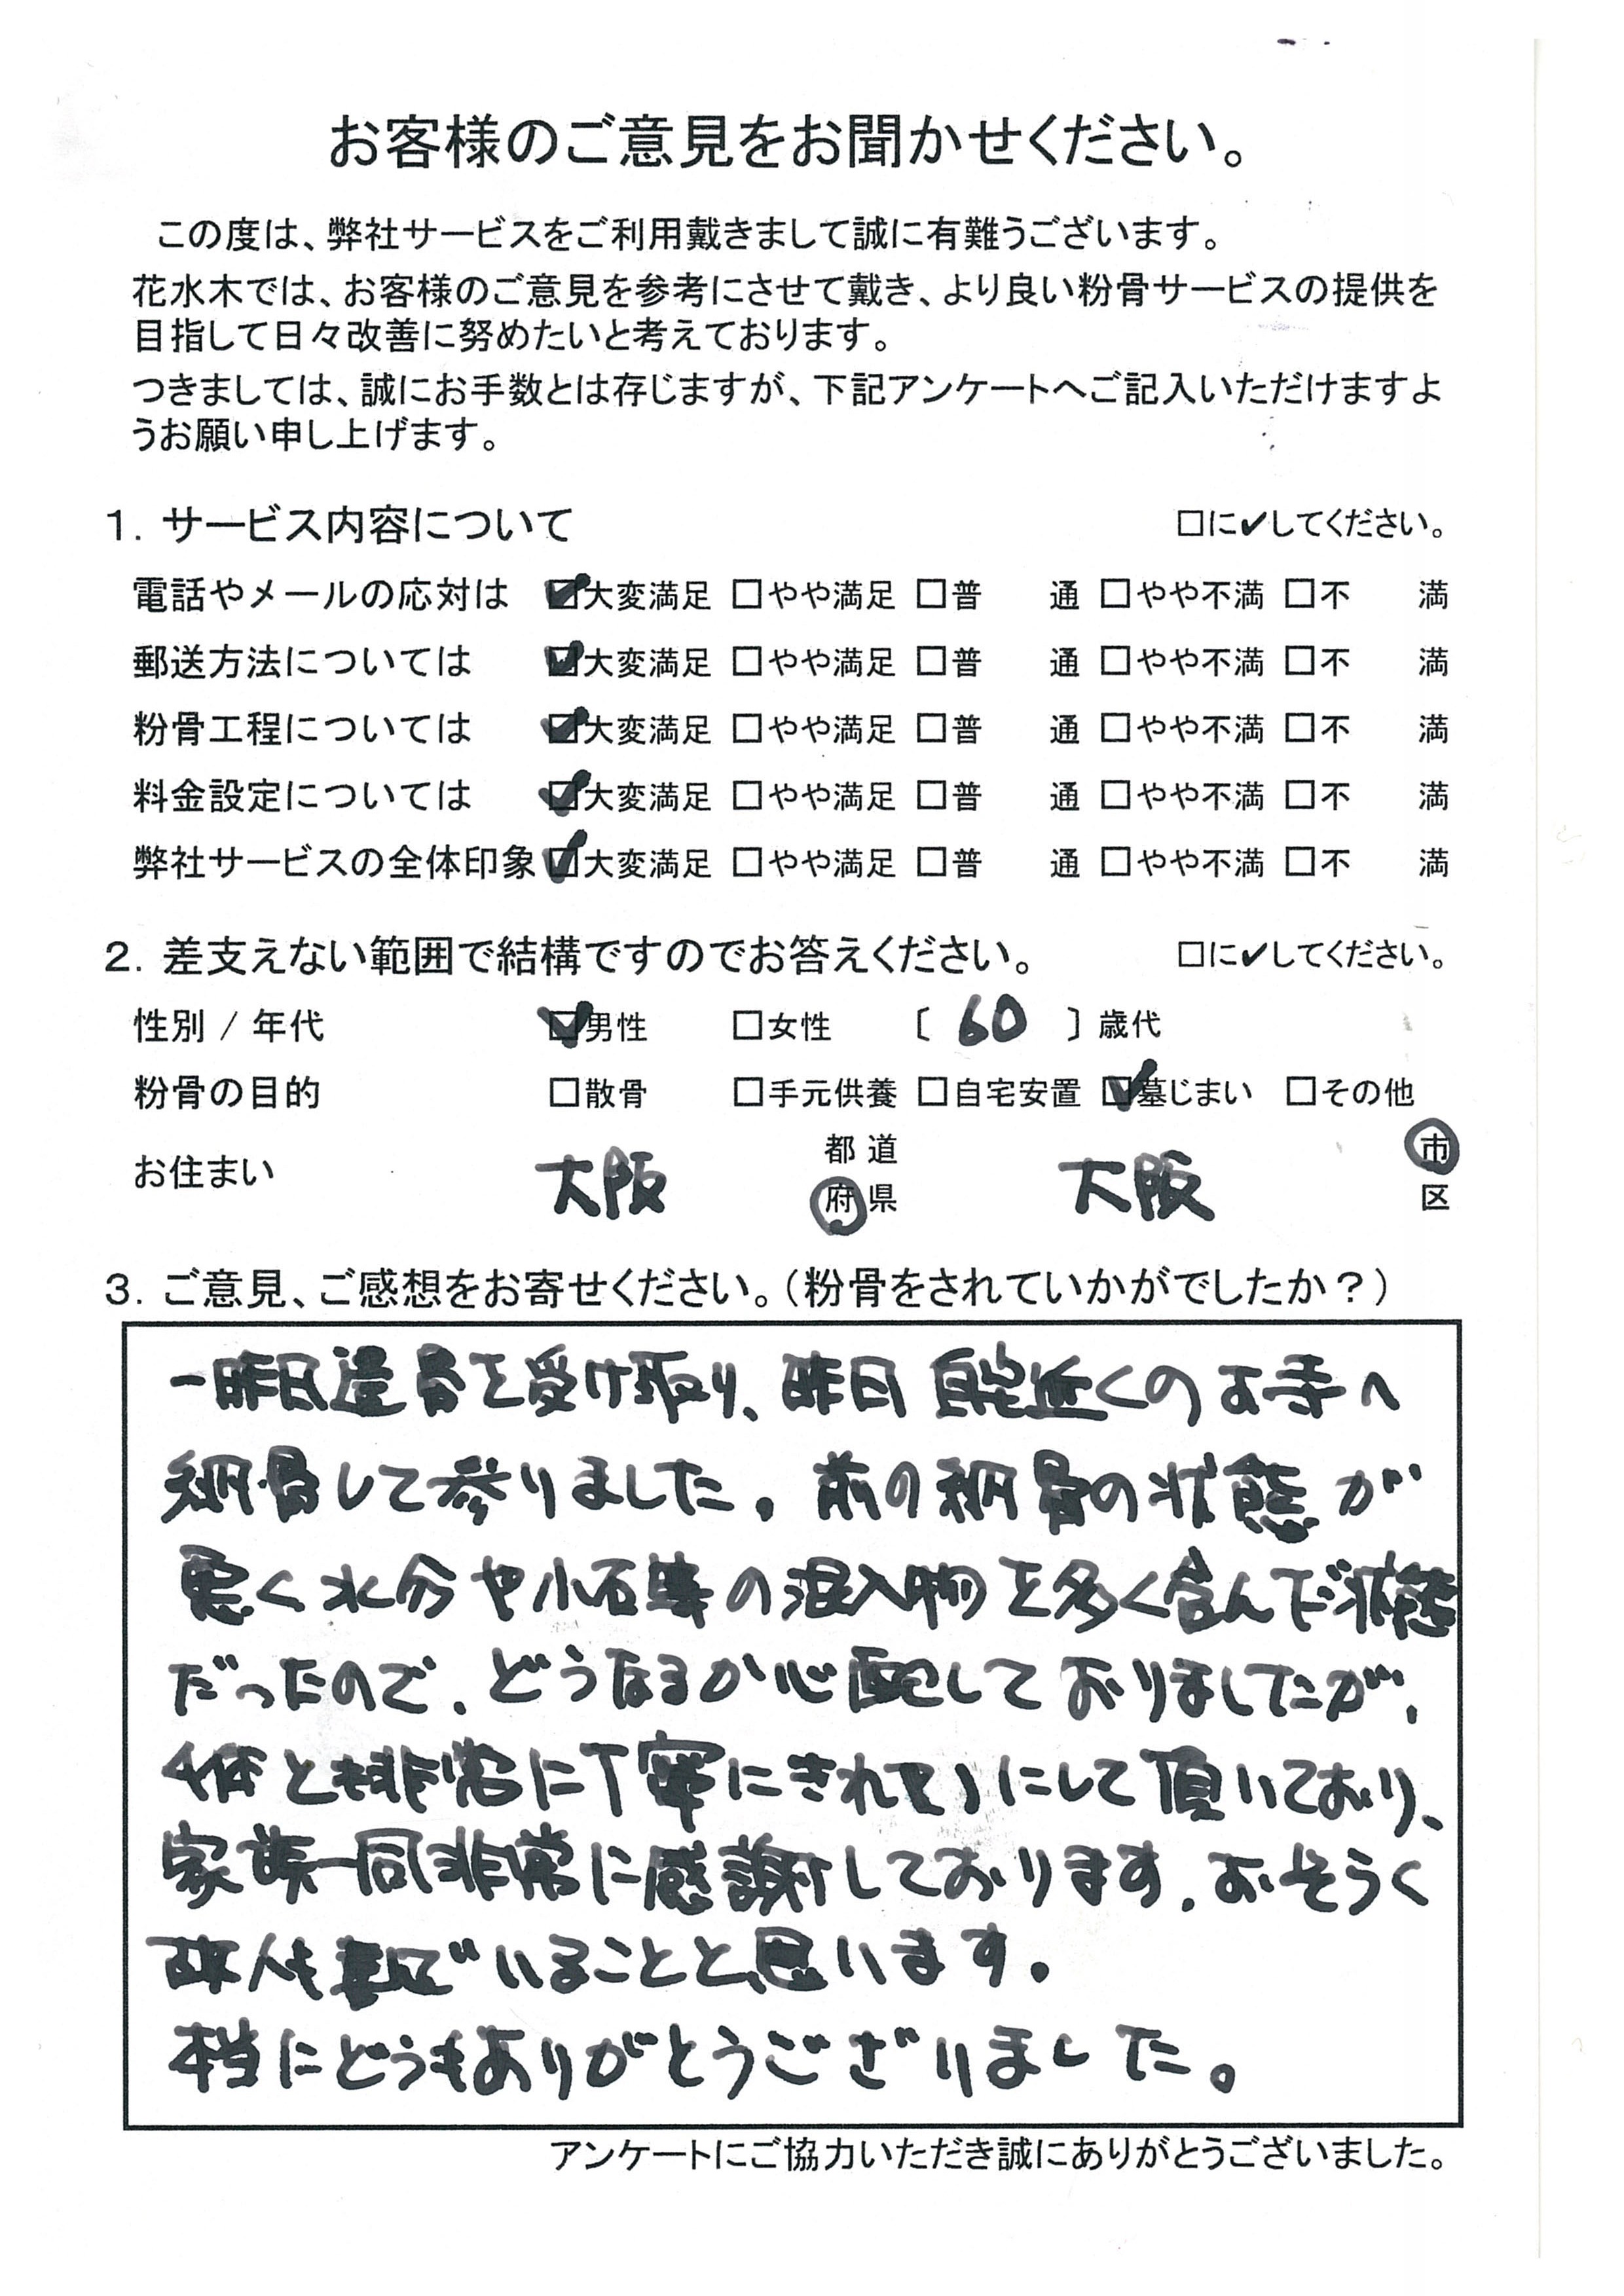 お客様のご意見をお聞かせください。
この度は、弊社サービスをご利用戴きまして誠に有難うございます。
花水木では、お客様のご意見を参考にさせて戴き、より良い粉骨サービスの提供を
目指して日々改善に努めたいと考えております。
つきましては、誠にお手数とは存じますが、下記アンケートへご記入いただけますよ
うお願い申し上げます。
1. サービス内容について □に✔してください。
電話やメールの応対は ☑大変満足 □やや満足 □普 通 □やや不満 □不 満
郵送方法については ☑大変満足 □やや満足 □普 通 □やや不満 □不 満
粉骨工程については ☑大変満足 □やや満足 □普 通 □やや不満 □不 満
料金設定については ☑大変満足 □やや満足 □普 通 □やや不満 □不 満
弊社サービスの全体印象 ☑大変満足 □やや満足 □普 通 □やや不満 □不 満
2. 差支えない範囲で結構ですのでお答えください。 □に✔してください。
性別 / 年代 ☑男性 □女性 〔 60 〕歳代
粉骨の目的 □散骨 □手元供養 □自宅安置 ☑墓じまい □その他
お住まい 大阪 都 道 府 県 大阪 市 区
3. ご意見、ご感想をお寄せください。（粉骨をされていかがでしたか？）
一昨日遺骨を受け取り、昨日自宅近くのお寺へ
納骨して参りました。前の納骨の状態が
悪く水分や小石等の混入物を多く含んだ状態
だったので、どうなるか心配しておりましたが、
とも非常に丁寧にきれいにして頂いており、
家族一同非常に感謝しております。おそらく
故人も喜んでいることと思います。
本当にどうもありがとうございました。
アンケートにご協力いただき誠にありがとうございました。